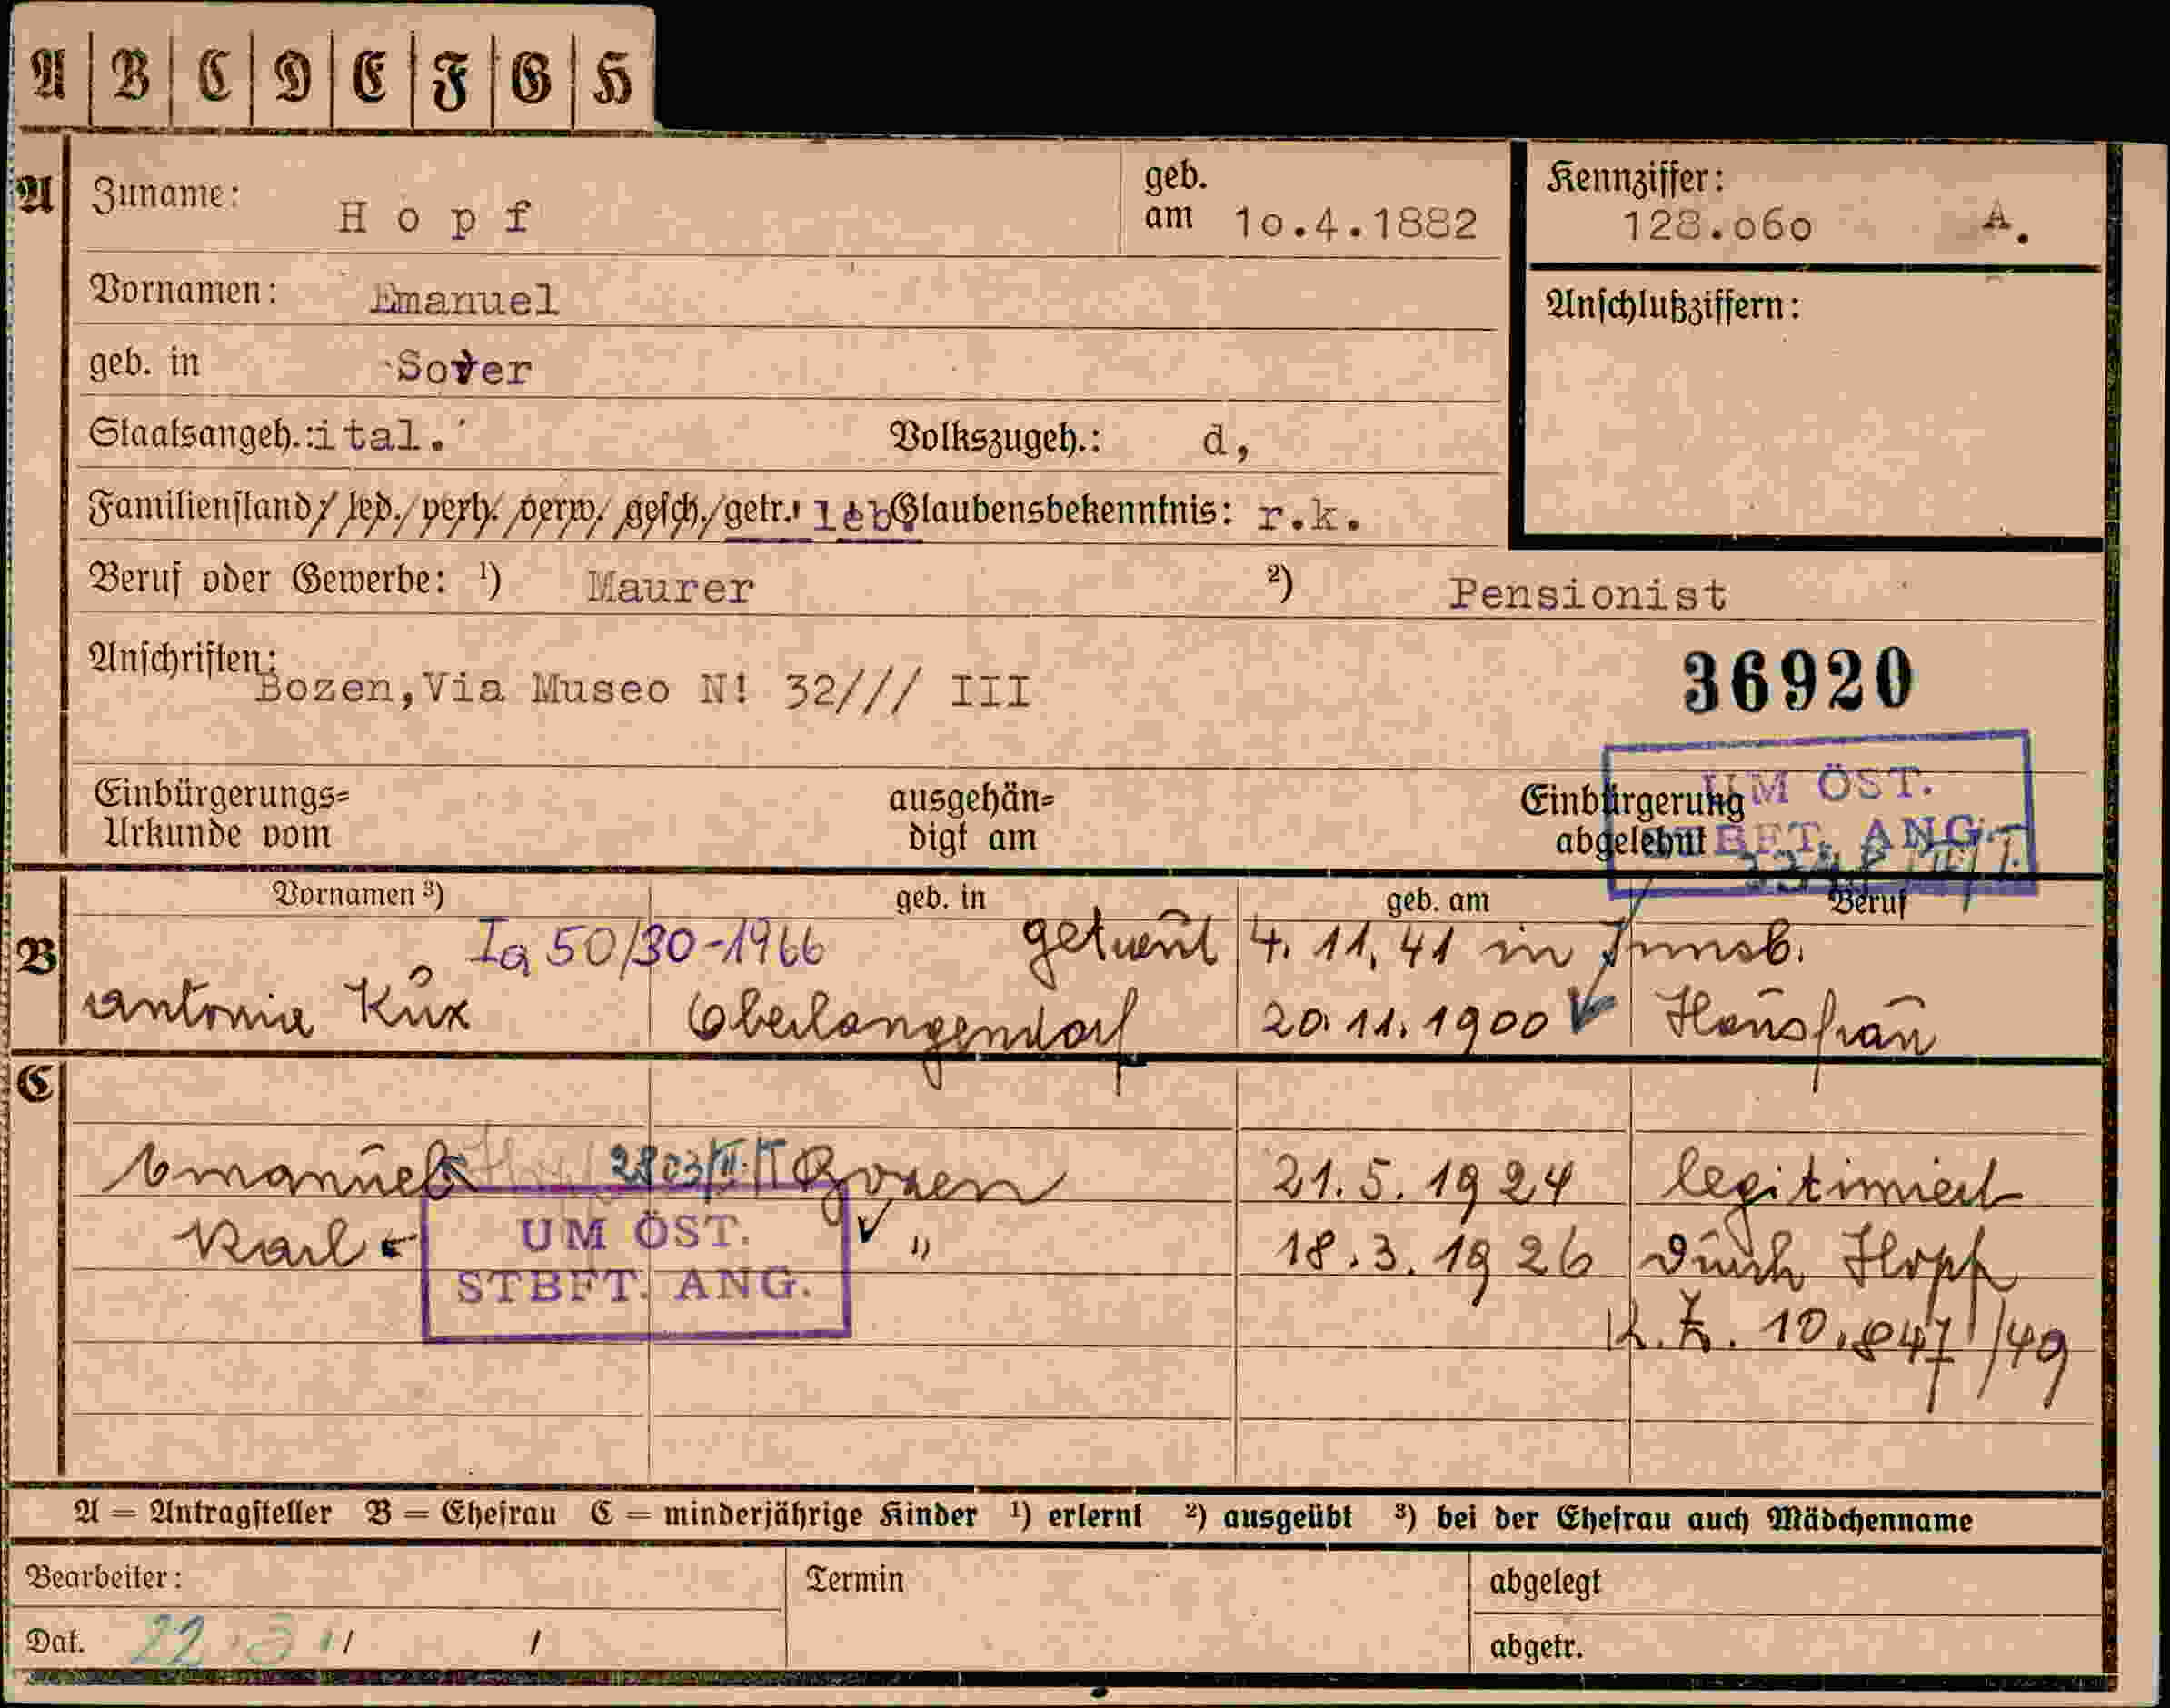 A B C D E F G H
A Zuname: Hopf geb. am 10.4.1882 Kennziffer: 128.060 A.
Vornamen: Emanuel Anschlußziffern:
geb. in Sover
Staatsangeh.: ital. Volkszugeh.: d,
Familienstand/ led./verh./verw./gesch./getr. Glaubensbekenntnis: r.k.
Beruf oder Gewerbe: ¹) Maurer ²) Pensionist
Anschriften: Bozen, Via Museo N! 32/// III
36920
Einbürgerungs= Urkunde vom ausgehän= digt am Einbürgerung abgelehnt
UM ÖST.
STBFT. ANG.
Vornamen ³) geb. in geb. am Beruf
B Ia 50/30-1966 getraut 4. 11. 41 in Innsb.
Antonia Küx Oberlangendorf 20. 11. 1900 Hausfrau
C
Emanuel Bozen 21. 5. 1924 legitimiert
Karl " 18. 3. 1926 durch Hopf
UM ÖST.
STBFT. ANG.
K.Z. 10.847/49
A = Antragsteller B = Ehefrau C = minderjährige Kinder ¹) erlernt ²) ausgeübt ³) bei der Ehefrau auch Mädchenname
Bearbeiter: Termin abgelegt
Dat. 22. 3. / / abgetr.